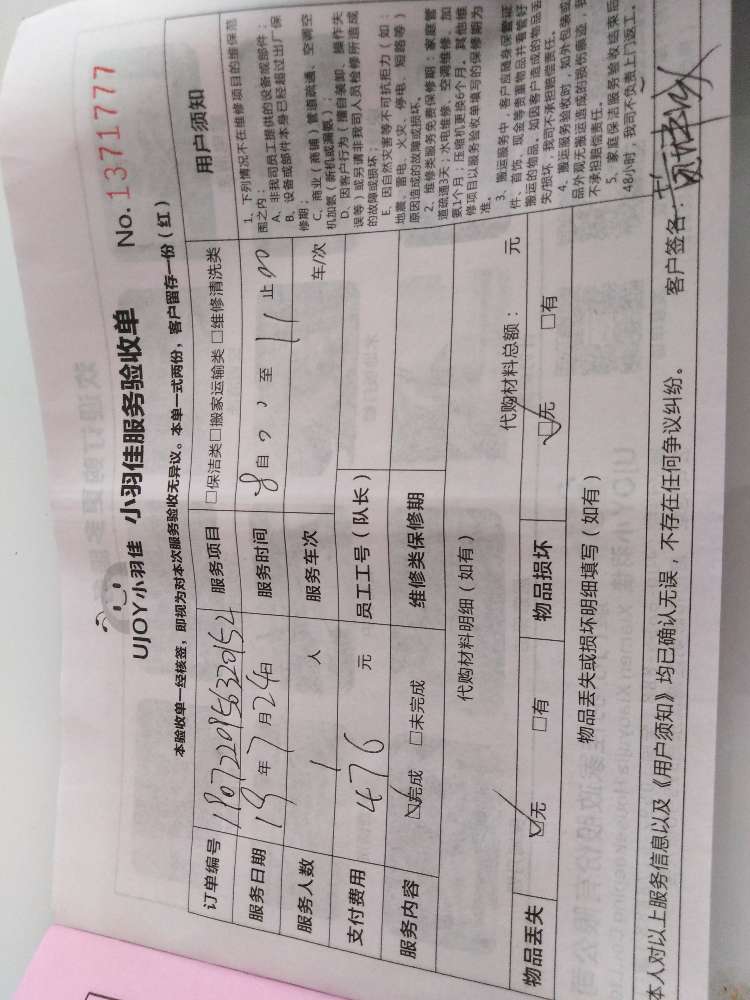 UJOY小羽佳 小羽佳服务验收单 No. 1371777
本验收单一经核签，即视为对本次服务验收无异议。本单一式两份，客户留存一份（红）
订单编号 服务项目 □保洁类□搬家运输类 □维修清洗类
服务日期 19年7月24日 服务时间 自 至 11止00
服务人数 1人 服务车次 车/次
支付费用 476元 员工工号（队长）
服务内容 ☑完成 □未完成 维修类保修期
代购材料明细（如有） 代购材料总额： 元
物品丢失 ☑无 □有 物品损坏 ☑无 □有
物品丢失或损坏明细填写（如有）
用户须知
1、下列情况不在维修项目的维保范
围之内：
A、非我司员工提供的设备或部件；
B、设备或部件本身已经超过出厂保
修期；
C、商业（商铺）管道疏通、空调空
机加氨（新机或漏氨）；
D、因客户行为（擅自装卸、操作失
误等）或另请非我司人员检修所造成
的故障或损坏；
E、因自然灾害等不可抗拒力（如：
地震、雷电、火灾、停电、短路等）
原因造成的故障或损坏。
2、维修类服务免费保修期：家庭管
道疏通3天；水电维修、空调维修、加
氨1个月；压缩机更换6个月。其他维
修项目以服务验收单填写的保修期为
准。
3、搬运服务中，客户应随身保管证
件、首饰、现金等贵重物品并看管好
搬运的物品，如因客户造成的物品丢
失/损坏，我司不承担赔偿责任。
4、搬运服务验收时，如外包装或
品外观无搬运造成的损伤痕迹，我
不承担赔偿责任。
5、家庭保洁服务验收结束后
48小时，我司不负责上门返工。
本人对以上服务信息以及《用户须知》均已确认无误，不存在任何争议纠纷。 客户签名：